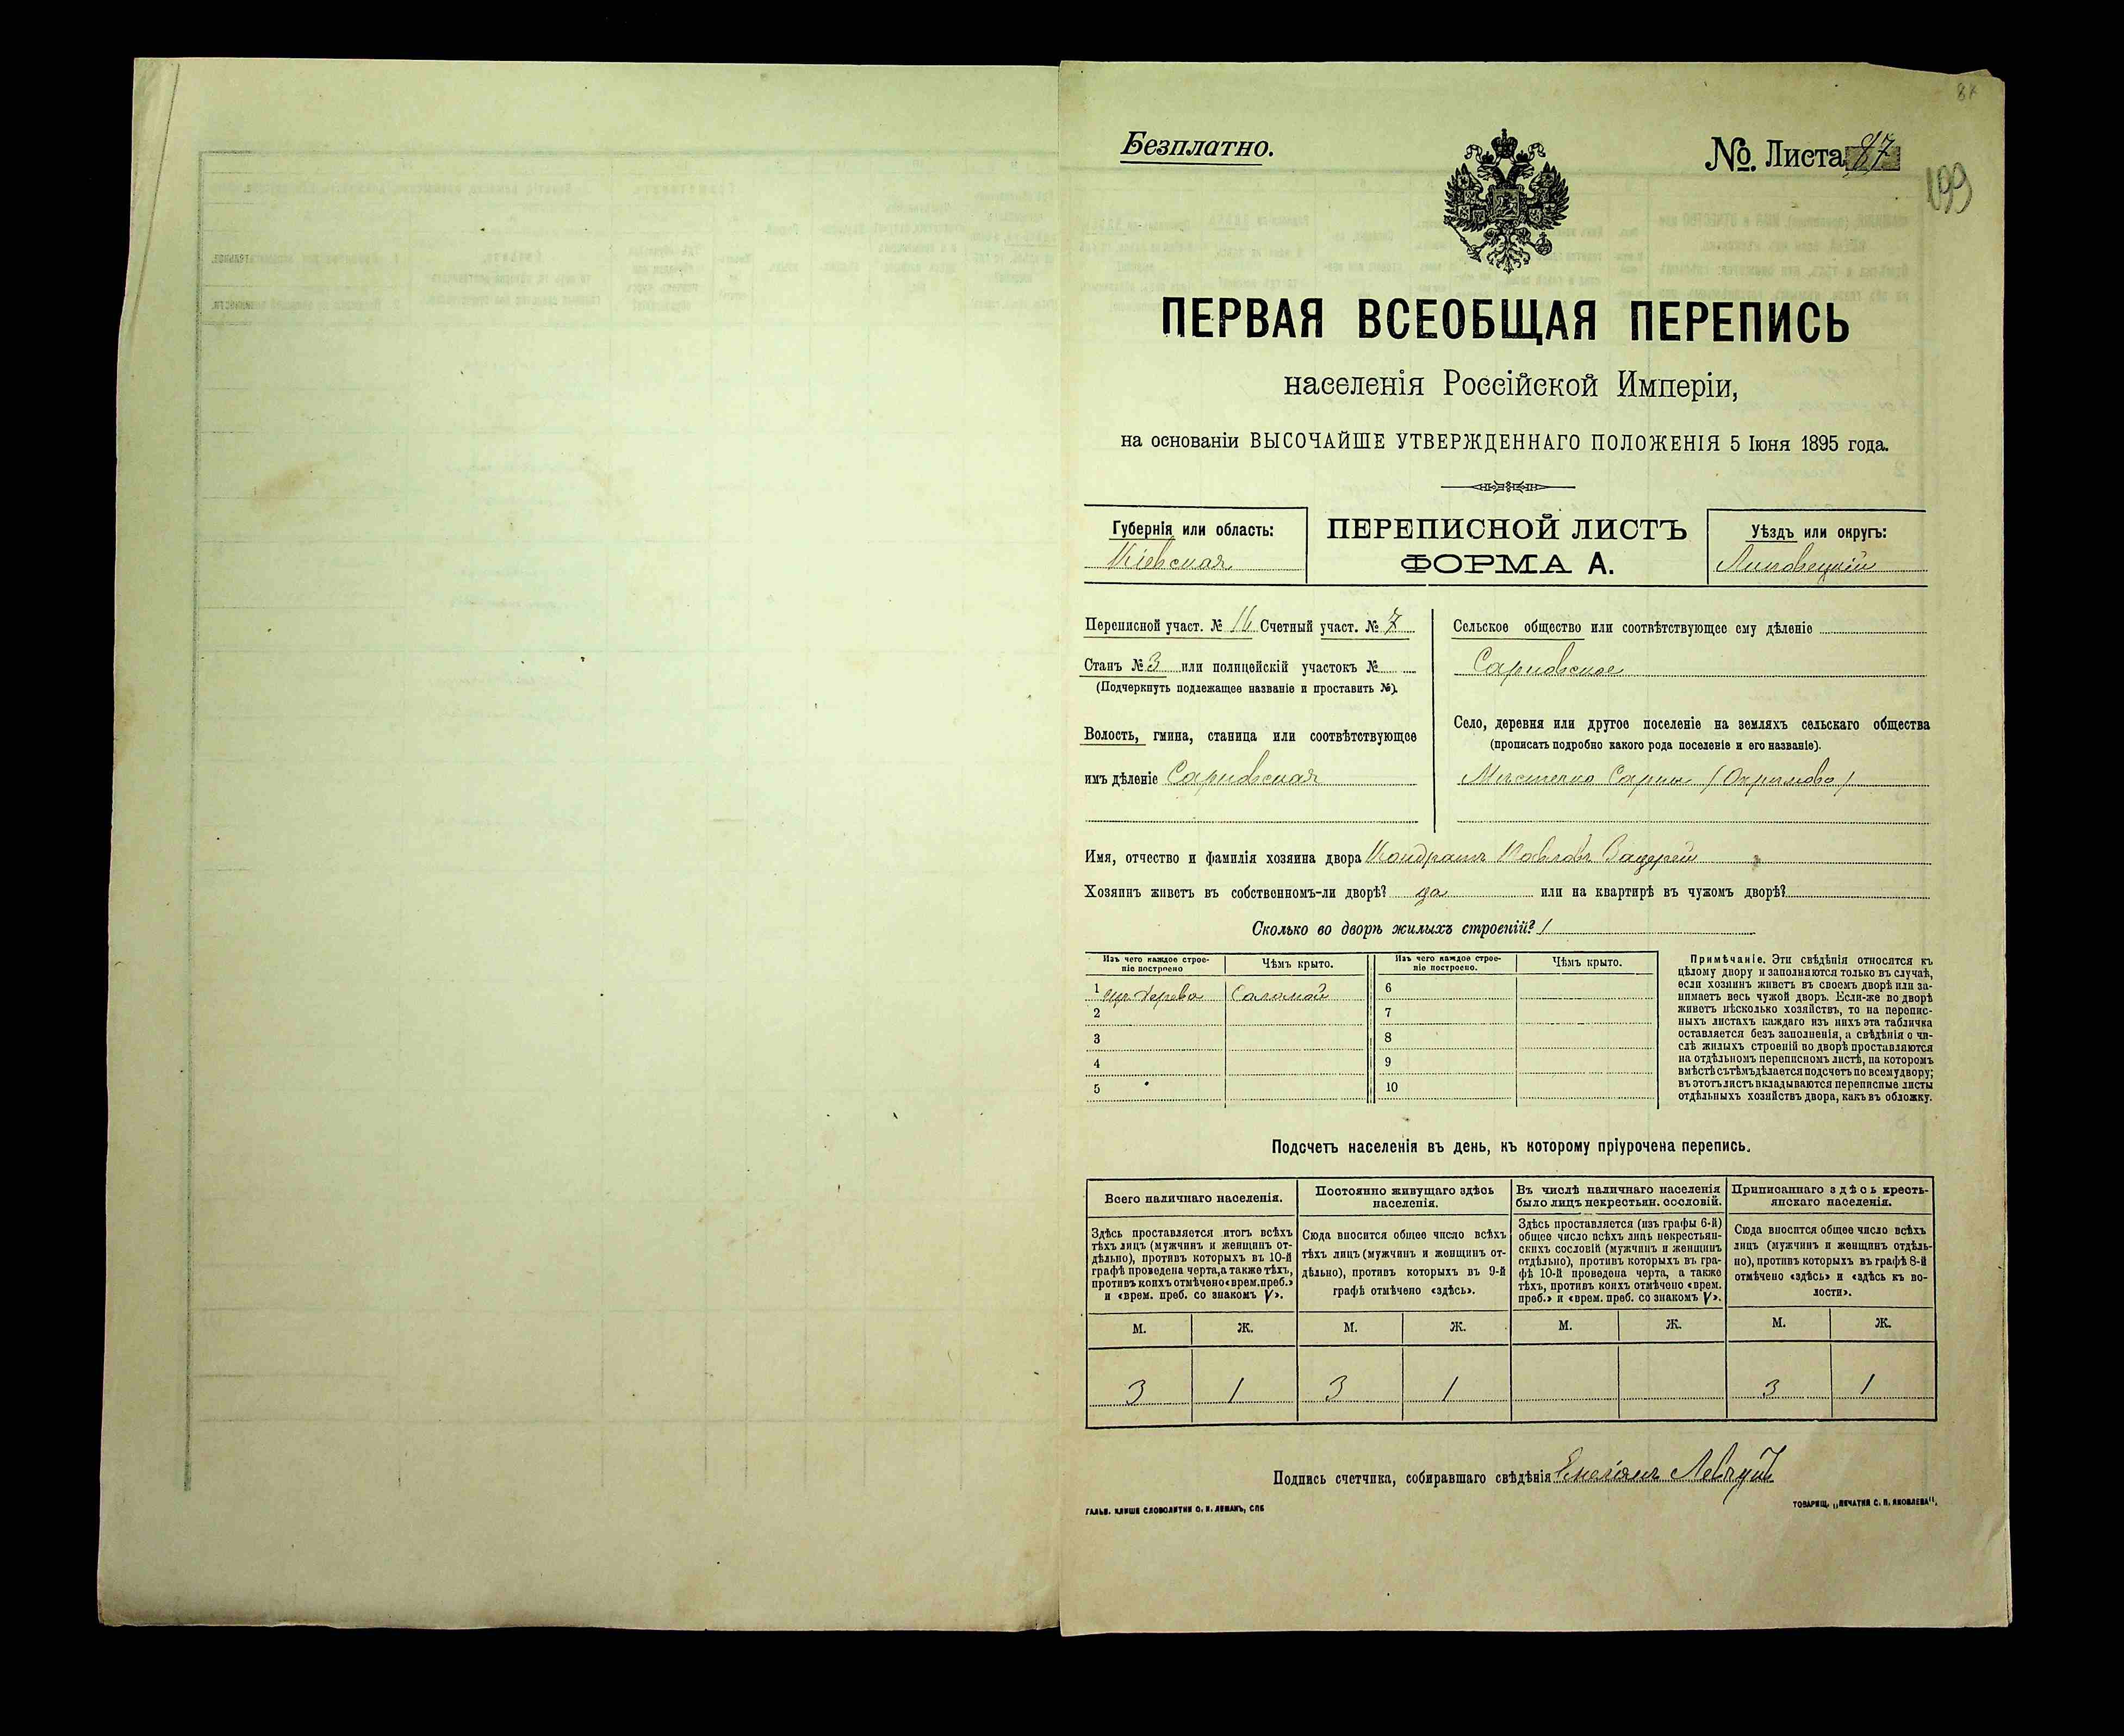 87
Безплатно.
№ Листа 87
199
ПЕРВАЯ ВСЕОБЩАЯ ПЕРЕПИСЬ
населенія Россійской Имперіи,
на основаніи ВЫСОЧАЙШЕ УТВЕРЖДЕННАГО ПОЛОЖЕНІЯ 5 Іюня 1895 года.
Губернія или область:
Кіевская
ПЕРЕПИСНОЙ ЛИСТЪ
ФОРМА А.
Уѣздъ или округъ:
Липовецкій
Переписной участ. № 16 Счетный участ. № 7
Станъ № 3 или полицейскій участокъ №
(Подчеркнуть подлежащее названіе и проставить №).
Волость, гмина, станица или соотвѣтствующее
имъ дѣленіе Сарновская
Сельское общество или соотвѣтствующее ему дѣленіе
Сарновское
Село, деревня или другое поселеніе на земляхъ сельскаго общества
(прописать подробно какого рода поселеніе и его названіе).
Мѣстечко Сарны (Охримово)
Имя, отчество и фамилія хозяина двора Кондратъ
Хозяинъ живетъ въ собственномъ-ли дворѣ? да или на квартирѣ въ чужомъ дворѣ?
Сколько во дворѣ жилыхъ строеній? 1
Изъ чего каждое строе-
ніе построено
Чѣмъ крыто.
Изъ чего каждое строе-
ніе построено.
Чѣмъ крыто.
1 изъ дерева Соломой
2
3
4
5
6
7
8
9
10
Примѣчаніе. Эти свѣдѣнія относятся къ
цѣлому двору и заполняются только въ случаѣ,
если хозяинъ живетъ въ своемъ дворѣ или за-
нимаетъ весь чужой дворъ. Если-же во дворѣ
живетъ нѣсколько хозяйствъ, то на перепис-
ныхъ листахъ каждаго изъ нихъ эта табличка
оставляется безъ заполненія, а свѣдѣнія о чи-
слѣ жилыхъ строеній во дворѣ проставляются
на отдѣльномъ переписномъ листѣ, на которомъ
вмѣстѣ съ тѣмъ дѣлается подсчетъ по всему двору;
въ этотъ листъ вкладываются переписные листы
отдѣльныхъ хозяйствъ двора, какъ въ обложку.
Подсчетъ населенія въ день, къ которому пріурочена перепись.
Всего наличнаго населенія.
Здѣсь проставляется итогъ всѣхъ
тѣхъ лицъ (мужчинъ и женщинъ от-
дѣльно), противъ которыхъ въ 10-й
графѣ проведена черта, а также тѣхъ,
противъ коихъ отмѣчено «врем. преб.»
и «врем. преб. со знакомъ V».
Постоянно живущаго здѣсь
населенія.
Сюда вносится общее число всѣхъ
тѣхъ лицъ (мужчинъ и женщинъ от-
дѣльно), противъ которыхъ въ 9-й
графѣ отмѣчено «здѣсь».
Въ числѣ наличнаго населенія
было лицъ некрестьян. сословій.
Здѣсь проставляется (изъ графы 6-й)
общее число всѣхъ лицъ некрестьян-
скихъ сословій (мужчинъ и женщинъ
отдѣльно), противъ которыхъ въ гра-
фѣ 10-й проведена черта, а также
тѣхъ, противъ коихъ отмѣчено «врем.
преб.» и «врем. преб. со знакомъ V».
Приписаннаго здѣсь кресть-
янскаго населенія.
Сюда вносится общее число всѣхъ
лицъ (мужчинъ и женщинъ отдѣль-
но), противъ которыхъ въ графѣ 8-й
отмѣчено «здѣсь» и «здѣсь къ во-
лости».
М. Ж. М. Ж. М. Ж. М. Ж.
3 1 3 1 3 1
Подпись счетчика, собиравшаго свѣдѣнія Емельянъ Левчукъ
ГАЛЬВ. КЛИШЕ СЛОВОЛИТНИ О. И. ЛЕМАНЪ, СПБ
ТОВАРИЩ. „ПЕЧАТНЯ С. П. ЯКОВЛЕВА“.